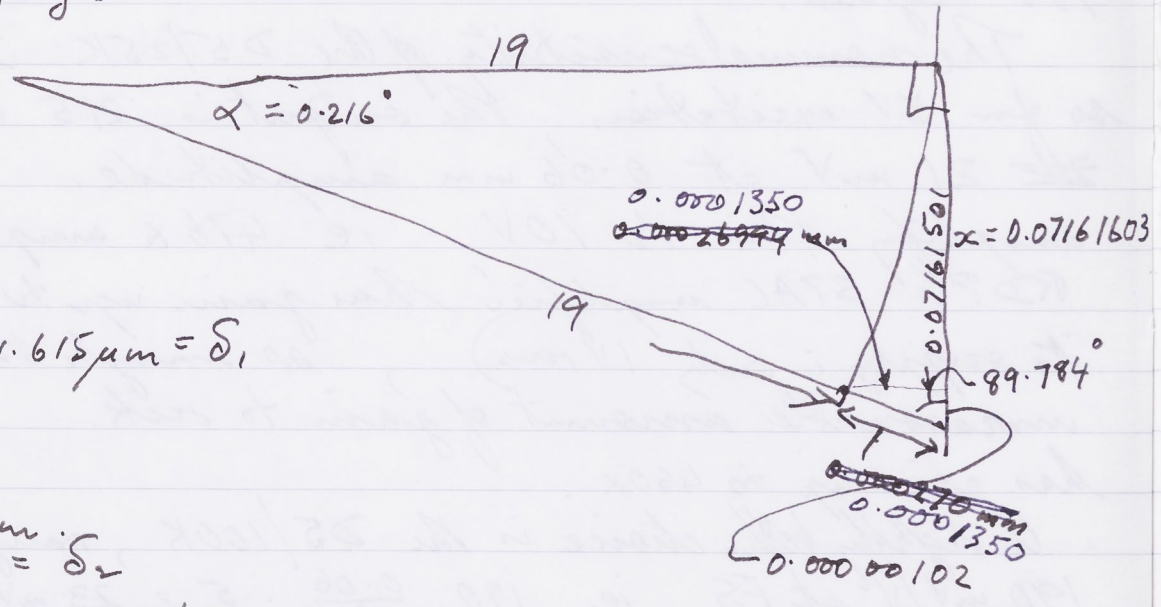 19
α = 0.216°
0.0001350
0.00026999 mm
0.07161501
x = 0.07161603
19
1.615μm = δ₁
89.784°
0.000270 mm
0.0001350
= δ₂
0.00000102